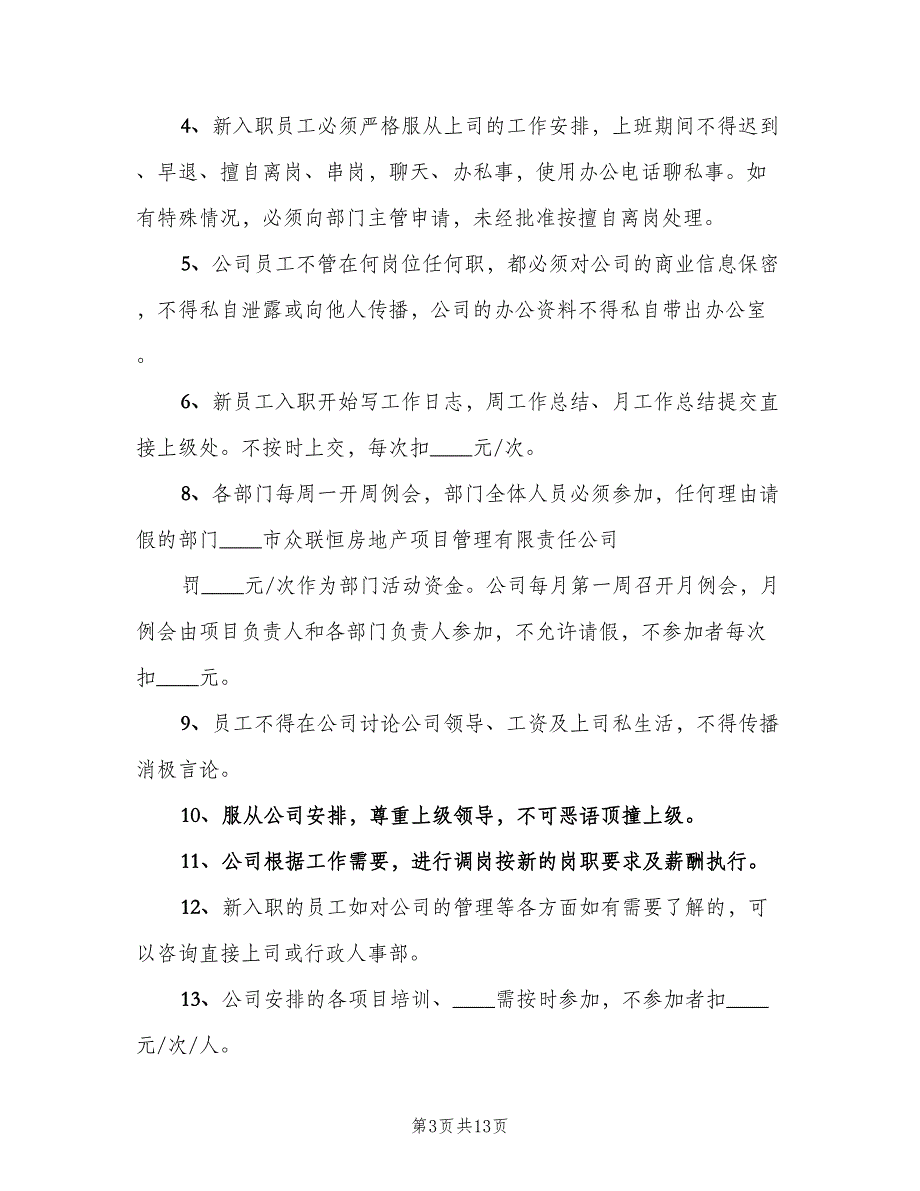 4、新入职员工必须严格服从上司的工作安排，上班期间不得迟到
、早退、擅自离岗、串岗，聊天、办私事，使用办公电话聊私事。如
有特殊情况，必须向部门主管申请，未经批准按擅自离岗处理。
5、公司员工不管在何岗位任何职，都必须对公司的商业信息保密
，不得私自泄露或向他人传播，公司的办公资料不得私自带出办公室
。
6、新员工入职开始写工作日志，周工作总结、月工作总结提交直
接上级处。不按时上交，每次扣____元/次。
8、各部门每周一开周例会，部门全体人员必须参加，任何理由请
假的部门____市众联恒房地产项目管理有限责任公司
罚____元/次作为部门活动资金。公司每月第一周召开月例会，月
例会由项目负责人和各部门负责人参加，不允许请假，不参加者每次
扣____元。
9、员工不得在公司讨论公司领导、工资及上司私生活，不得传播
消极言论。
10、服从公司安排，尊重上级领导，不可恶语顶撞上级。
11、公司根据工作需要，进行调岗按新的岗职要求及薪酬执行。
12、新入职的员工如对公司的管理等各方面如有需要了解的，可
以咨询直接上司或行政人事部。
13、公司安排的各项目培训、____需按时参加，不参加者扣____
元/次/人。
第3页共13页